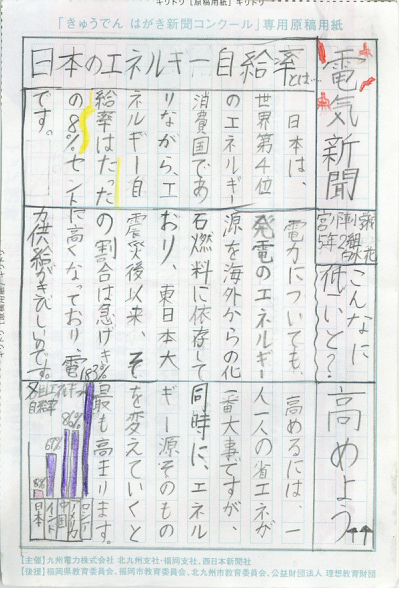 「きゅうでん はがき新聞コンクール」専用原稿用紙
電気新聞
日本のエネルギー自給率とは…
日本は、
世界第4位
のエネルギー
消費国であ
りながら、エ
ネルギー自
給率はたった
の8%
です。
こんなに
低いと？
電力についても、
発電のエネルギー
源を海外からの化
石燃料に依存して
おり、東日本大
震災後以来、そ
の割合は急げき
に高くなっており、電
力供給がきびしいのです。
高めよう
高めるには、一
人一人の省エネが
一番大事ですが、
同時に、エネル
ギー源そのもの
を変えていくと
最も高まります。
183%
86%
67%
8%
ロシア
アメリカ
中国
インド
日本
【主催】九州電力株式会社 北九州支社・福岡支社、西日本新聞社
【後援】福岡県教育委員会、福岡市教育委員会、北九州市教育委員会、公益財団法人 理想教育財団